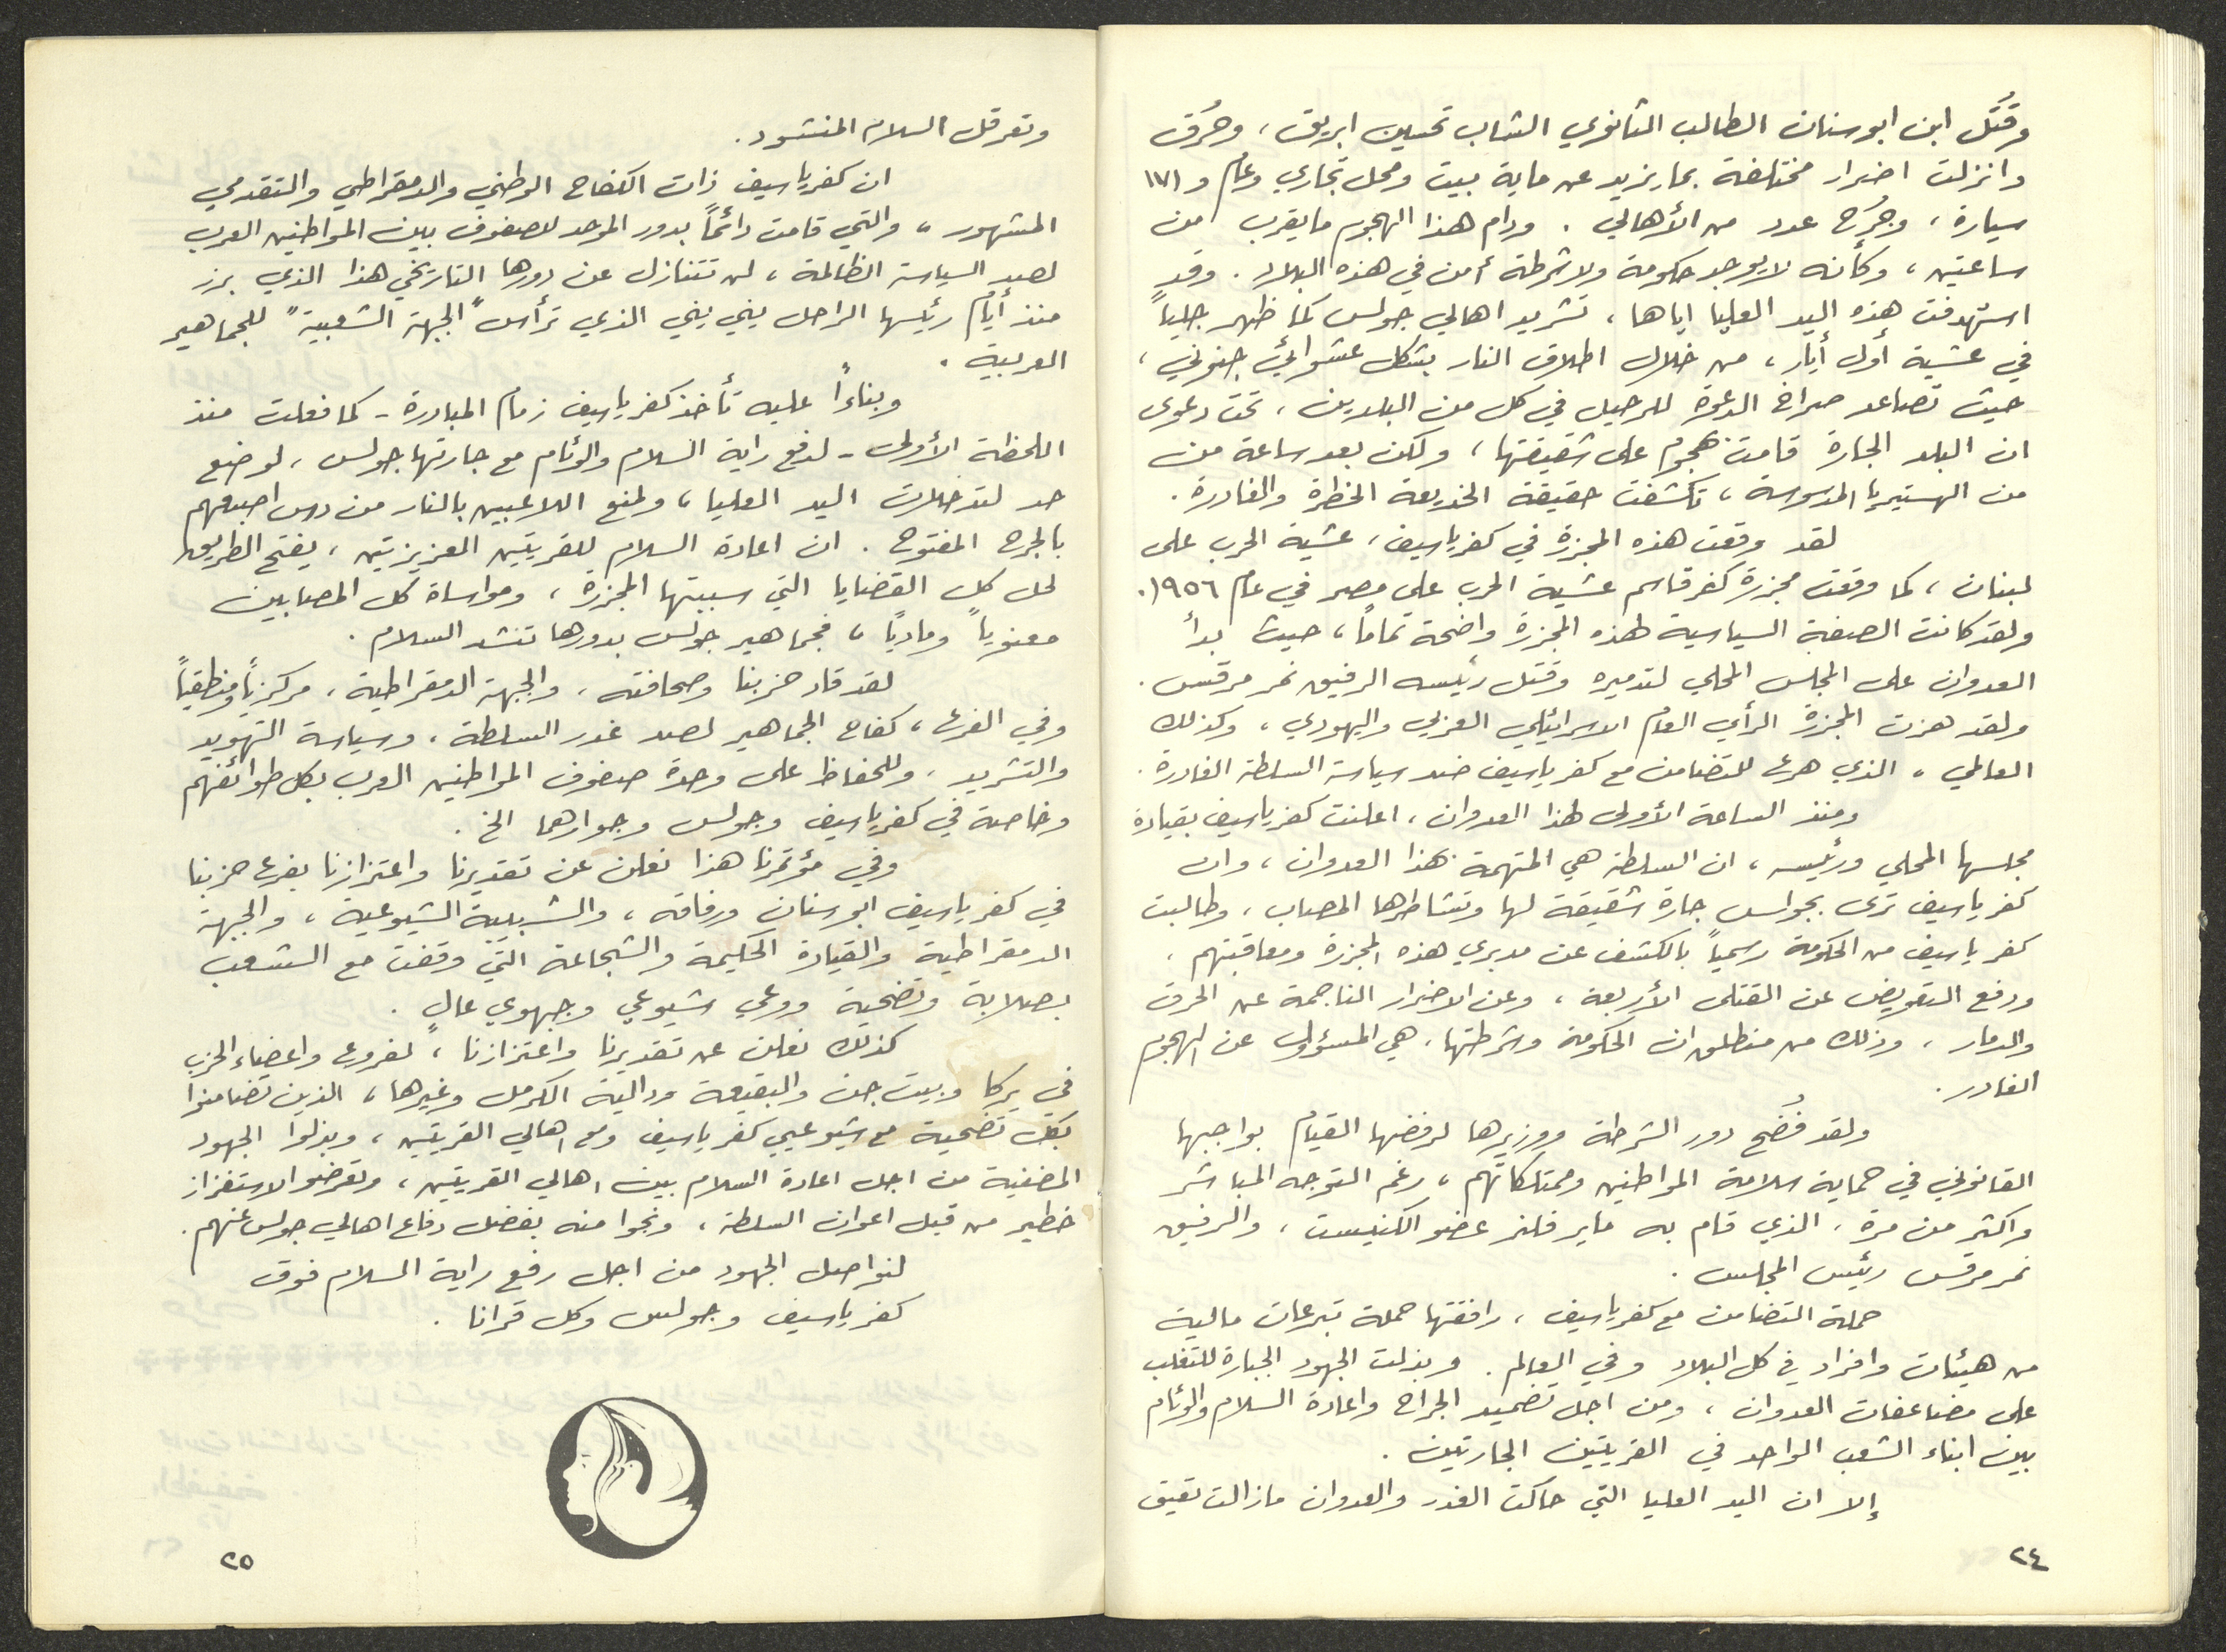 وقُتل ابن ابوسنان الطالب الثانوي الشاب تحسين ابريق، وحُرق
وانزلت اضرار مختلفة بما يزيد عن ماية بيت ومحل تجاري وعام و ١٧١
سيارة، وجُرح عدد من الأهالي. ودام هذا الهجوم ما يقرب من
ساعتين، وكأنه لا يوجد حكومة ولا شرطة أمن في هذه البلاد. وقد
استهدفت هذه اليد العليا اياها، تشريد اهالي جولس كما ظهر جلياً
في عشية أول أيار، من خلال اطلاق النار بشكل عشوائي جنوني،
حيث تصاعد صراخ الدعوة للرحيل في كل من البلدين، تحت دعوى
ان البلد الجارة قامت بهجوم على شقيقتها، ولكن بعد ساعة من
من الهستيريا المدسوسة، تكشفت حقيقة الخديعة الخطرة والغادرة.
لقد وقعت هذه المجزرة في كفرياسيف، عشية الحرب على
لبنان، كما وقعت مجزرة كفرقاسم عشية الحرب على مصر في عام ١٩٥٦.
ولقد كانت الصبغة السياسية لهذه المجزرة واضحة تماماً، حيث بدأ
العدوان على المجلس المحلي لتدميره وقتل رئيسه الرفيق نمر مرقس.
ولقد هزت المجزرة الرأي العام الاسرائيلي العربي واليهودي، وكذلك
العالمي، الذي هرع للتضامن مع كفرياسيف ضد سياسة السلطة الغادرة.
ومنذ الساعة الأولى لهذا العدوان، اعلنت كفرياسيف بقيادة
مجلسها المحلي ورئيسه، ان السلطة هي المتهمة بهذا العدوان، وان
كفرياسيف ترى بجولس جارة شقيقة لها وتشاطرها المصاب، وطالبت
كفرياسيف من الحكومة رسمياً بالكشف عن مدبري هذه المجزرة ومعاقبتهم،
ودفع التعويض عن القتلى الأربعة، وعن الاضرار الناجمة عن الحرق
والدمار، وذلك من منطلق ان الحكومة وشرطتها، هي المسؤول عن الهجوم
الغادر.
ولقد فُضح دور الشرطة ووزيرها لرفضها القيام بواجبها
القانوني في حماية سلامة المواطنين وممتلكاتهم، رغم التوجه المباشر
واكثر من مرة، الذي قام به ماير فلنر عضو الكنيست، والرفيق
نمر مرقس رئيس المجلس.
حملة التضامن مع كفرياسيف، رافقتها حملة تبرعات مالية
من هيئات وافراد في كل البلاد وفي العالم. وبذلت الجهود الجبارة للتغلب
على مضاعفات العدوان، ومن اجل تضميد الجراح واعادة السلام والوئام
بين ابناء الشعب الواحد في القريتين الجارتين.
إلا ان اليد العليا التي حاكت الغدر والعدوان مازالت تعيق
٢٤
وتعرقل السلام المنشود.
ان كفرياسيف ذات الكفاح الوطني والدمقراطي والتقدمي
المشهور، والتي قامت دائماً بدور الموحد للصفوف بين المواطنين العرب
لصد السياسة الظالمة، لن تتنازل عن دورها التاريخي هذا الذي برز
منذ أيام رئيسها الراحل يني يني الذي ترأس "الجبهة الشعبية" للجماهير
العربية.
وبناءاً عليه تأخذ كفرياسيف زمام المبادرة - كما فعلت منذ
اللحظة الأولى - لدفع راية السلام والوئام مع جارتها جولس، لوضع
حد لتدخلات اليد العليا، ولمنع اللاعبين بالنار من دس اصبعهم
بالجرح المفتوح. ان اعادة السلام للقريتين العزيزتين، يفتح الطريق
لحل كل القضايا التي سببتها المجزرة، ومواساة كل المصابين
معنوياً ومادياً، فجماهير جولس بدورها تنشد السلام.
لقد قاد حزبنا وصحافته، والجبهة الدمقراطية، مركزياً ومنطقياً
وفي الفرع، كفاح الجماهير لصد غدر السلطة، وسياسة التهويد
والتشريد، وللحفاظ على وحدة صفوف المواطنين العرب بكل طوائفهم
وخاصة في كفرياسيف وجولس وجوارهما الخ.
وفي مؤتمرنا هذا نعلن عن تقديرنا واعتزازنا بفرع حزبنا
في كفرياسيف ابوسنان ورفاقه، والشبيبة الشيوعية، والجبهة
الدمقراطية والقيادة الحكيمة والشجاعة التي وقفت مع الشعب
بصلابة وتضحية ووعي شيوعي وجبهوي عالٍ.
كذلك نعلن عن تقديرنا واعتزازنا، لفروع واعضاء الحزب
في يركا وبيت جن والبقيعة ودالية الكرمل وغيرها، الذين تضامنوا
بكل تضحية مع شيوعيي كفرياسيف ومع اهالي القريتين، وبذلوا الجهود
المضنية من اجل اعادة السلام بين اهالي القريتين، وتعرضوا لاستفزاز
خطير من قبل اعوان السلطة، ونجوا منه بفضل دفاع اهالي جولس عنهم.
لنواصل الجهود من اجل رفع راية السلام فوق
كفرياسيف وجولس وكل قرانا.
٢٥